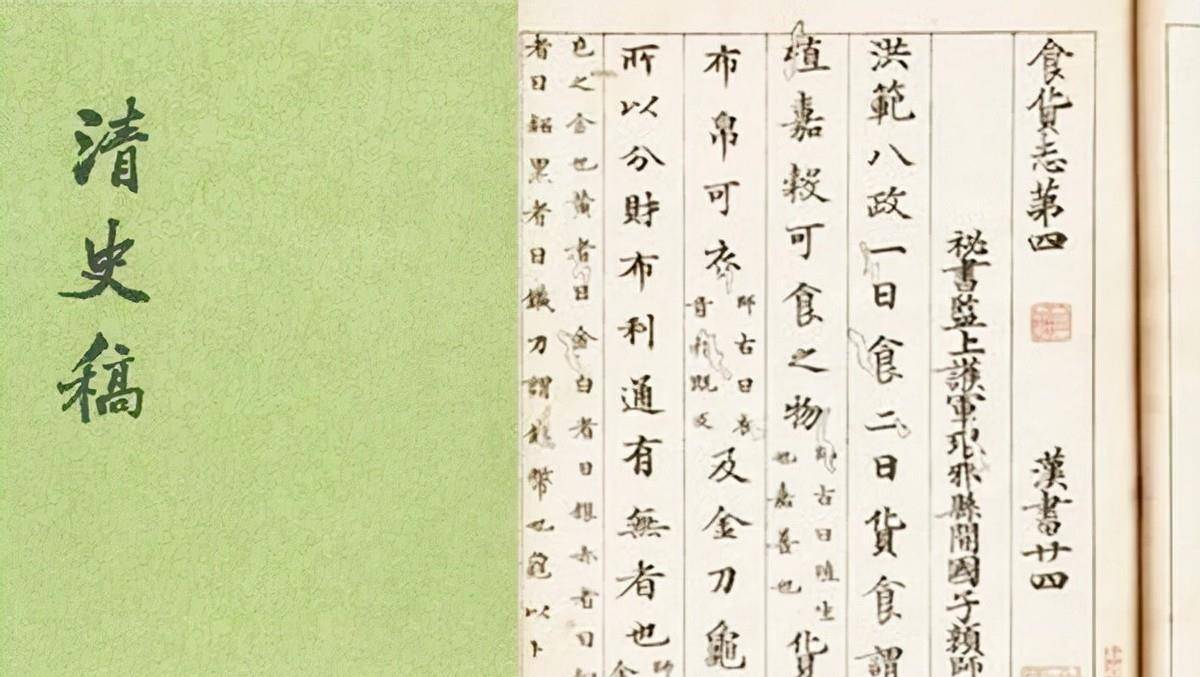 清史稿
食貨志第四 漢書廿四
秘書監上護軍琅邪縣開國子顏師
洪範八政一曰食二曰貨食謂
殖嘉穀可食之物
師古曰殖生
也嘉善也
貨
布帛可衣
師古曰衣
音於既反
及金刀龜
所以分財布利通有無者也
師
金
色之金也黃者曰金白者曰銀赤者曰
者曰鉛黑者曰鐵刀謂錢幣也龜以卜